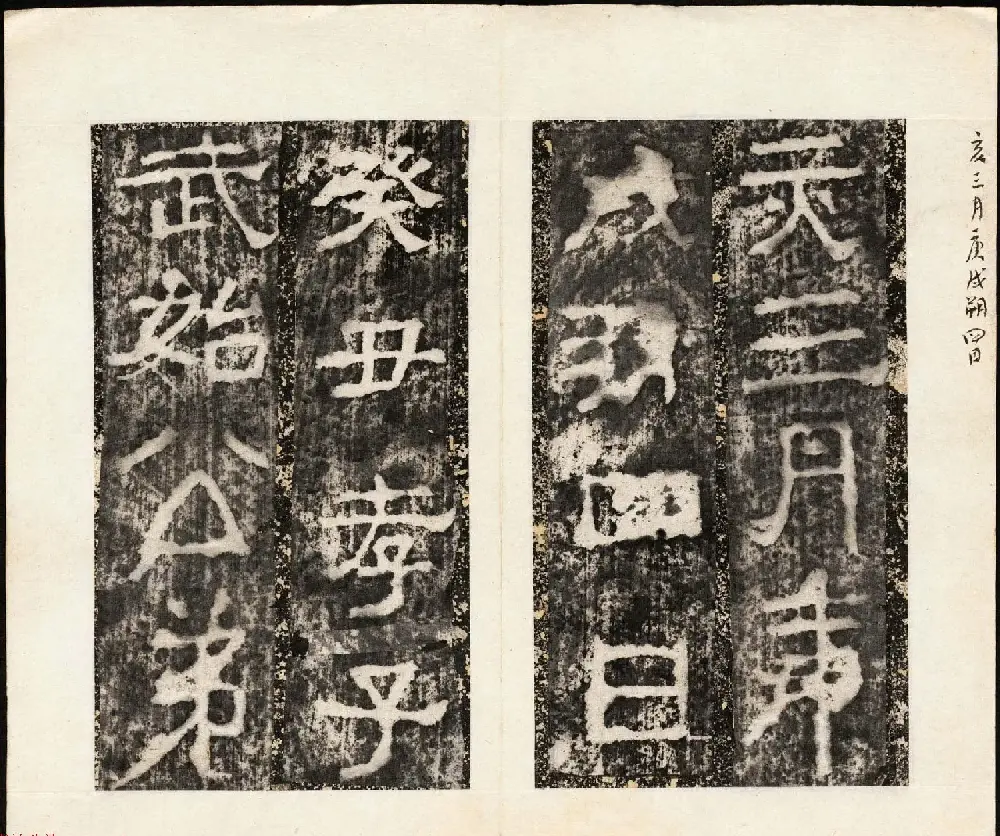 亥三月庚戌朔四日
亥三月庚
戌朔四日
癸丑孝子
武始公弟